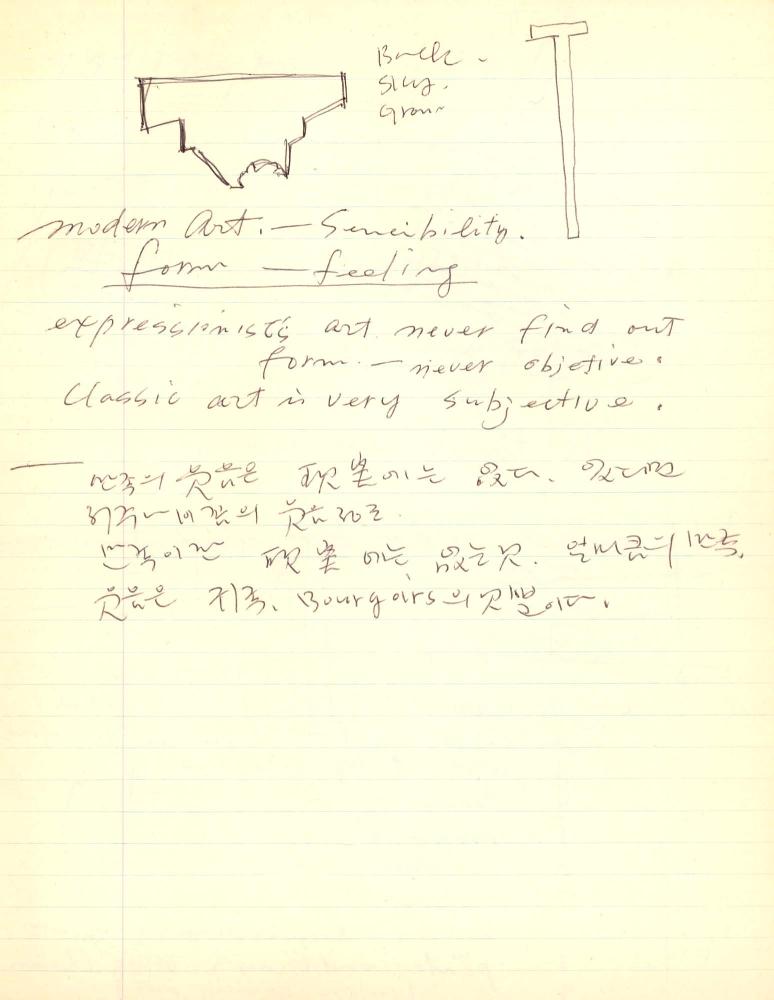 Back.
Sky.
Grou
modern Art. — Sencibility.
form — feeling
expressionist's art never find out
form. — never objetive.
Classic art is very subjective.
만족의 웃음은 現實에는 없다. 있다면
의 웃음
만족이란 現實에는 없는 것. 얼마큼의 만족,
웃음은 귀족, Bourgoirs의 것뿐이다.